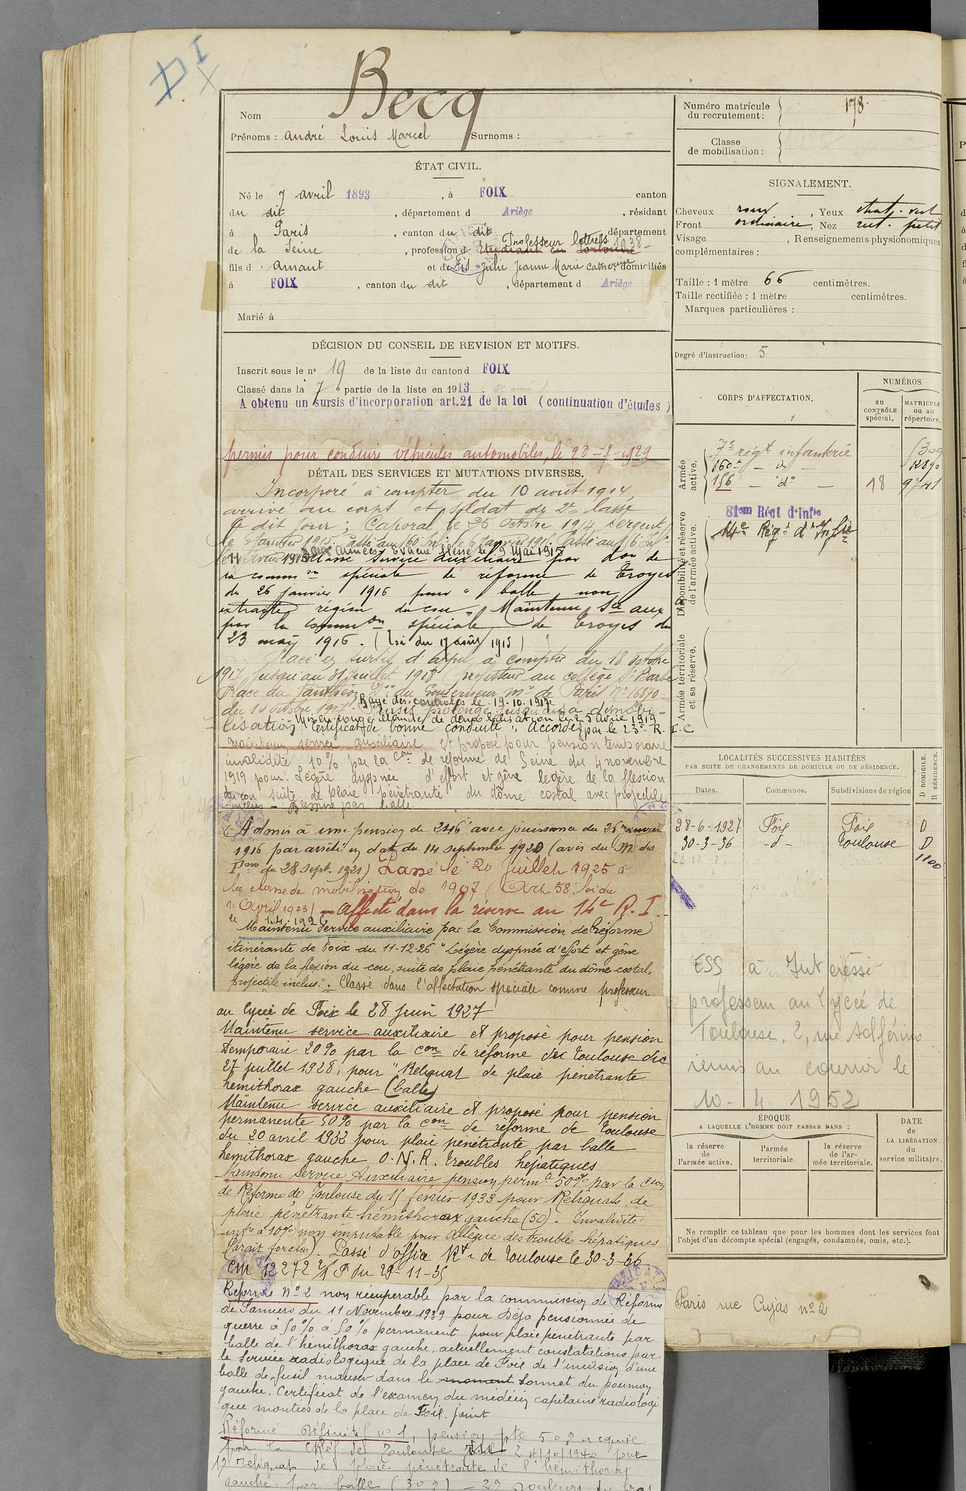 Nom Becq
Prénoms : André Louis Marcel Surnoms :
ÉTAT CIVIL.
Né le 7 avril 1893, à FOIX canton
du dit, département d Ariège, résidant
à Paris, canton du dit département
de la Seine, profession d Etudiant en Sorbonne Professeur lettres 1938
fils d Arnaut et de Fis Julie Jeanne Marie Catherine domiciliés
à FOIX, canton du dit, département d Ariège
Marié à
DÉCISION DU CONSEIL DE REVISION ET MOTIFS.
Inscrit sous le n° 19 de la liste du canton d FOIX
Classé dans la 7e partie de la liste en 1913
A obtenu un sursis d'incorporation art.21 de la loi (continuation d'études)
permis pour conduire véhicules automobiles, le 20-7-1929
DÉTAIL DES SERVICES ET MUTATIONS DIVERSES.
Incorporé à compter du 10 août 1914,
arrivé au corps et soldat de 2e classe
le dit jour ; Caporal le 26 octobre 1914 Sergent
Évacué blessé le 9 Mai 1915
classé service auxiliaire par don de
sa comm on spéciale de réforme de Troyes
du 26 janvier 1916 pour " balle non
extraite région du cou " Maintenu Sce aux
par la common spéciale de Troyes du
23 mai 1916. (Loi du 17 août 1915)
Placé en sursis d'appel à compter du 18 octobre
1917 jusqu'au 31 juillet 1918 professeur au collège Ste Barbe
Place du Panthéon, Don du Gouverneur Mre de Paris N° 16870
du 10 octobre 1917. Rayé des contrôles le 19.10.1917
Sursis prolongé jusqu'à la démobi-
lisation
certificat de bonne conduite " accordé par le 23e R.I.C
Maintenu service auxiliaire et proposé pour pension temporaire
invalidité 10% par la Con de réforme de Seine du 4 novembre
1919 pour : Légère dyspnée d'effort et gêne légère de la flexion
du cou suite de plaie pénétrante du dôme costal avec projectile
inclus - Blessure par balle
Admis à une pension de 246 avec jouissance du 26 janvier
1916 par arrêté en date du 14 septembre 1920 (avis du M. des
Pons du 28 Sept. 1921) Passé le 20 juillet 1925 à
la classe de mobilisation de 1907 (Art 58, loi du
1er Avril 1923) - Affecté dans la réserve au 14e R.I.
Maintenu Service auxiliaire par la Commission de Réforme
itinérante de Foix du 11-12-26 " Légère dyspnée d'effort et gêne
légère de la flexion du cou, suite de plaie pénétrante du dôme costal,
projectile inclus". Classé dans l'affectation spéciale comme professeur
au lycée de Foix le 28 juin 1927
Maintenu service auxiliaire et proposé pour pension
temporaire 20% par la con de réforme de Toulouse du
27 juillet 1928, pour "Reliquat de plaie pénétrante
hémithorax gauche (balle)
Maintenu service auxiliaire et proposé pour pension
permanente 50% par la con de réforme de Toulouse
du 20 avril 1932 pour plaie pénétrante par balle
hémithorax gauche O.N.R. troubles hépatiques
Maintenu Service Auxiliaire pension permte 50% par la Con
de Réforme de Toulouse du 15 février 1933 pour Reliquats de
plaie pénétrante hémithorax gauche (50). Invalidité
inf à 10% non imputable pour allégué des troubles hépatiques
Passé d'office Rt de Toulouse le 30-3-36
CM 12272 du 29-11-35
Réforme N° 2 non récupérable par la commission de Réforme
de Pamiers du 11 Novembre 1939 pour Déjà pensionné de
guerre à 50% à 50% permanent pour plaie pénétrante par
balle de l'hémithorax gauche, actuellement constatations par
le Service radiologique de la place de Foix de l'incusion d'une
balle de fusil mauser dans le sommet du poumon
gauche. Certificat de l'examen du médecin capitaine radiologi
que montées de la place de Foix. joint
Réforme Définitif n° 1, pension pte 50% acquise
par la CRéf de Toulouse 1940 pour
1° reliquat de plaie pénétrante de l'hémithorax
gauche par balle (30%) - 2° douleurs du bras
Numéro matricule du recrutement : 178.
Classe de mobilisation :
SIGNALEMENT.
Cheveux roux, Yeux chat. vert
Front ordinaire, Nez rect. petit
Visage, Renseignements physionomiques
complémentaires :
Taille : 1 mètre 66 centimètres.
Taille rectifiée : 1 mètre centimètres.
Marques particulières :
Degré d'instruction : 5
CORPS D'AFFECTATION.
NUMÉROS
AU CONTRÔLE spécial.
MATRICULE ou au répertoire.
Armée active.
7e régt infanterie
160e - d°
156 - d° - 18 9741
Disponibilité et réserve de l'armée active.
81em Régt d'Infie
14e Régt d'Infie
Armée territoriale et sa réserve.
LOCALITÉS SUCCESSIVES HABITÉES
PAR SUITE DE CHANGEMENTS DE DOMICILE OU DE RÉSIDENCE.
Dates. Communes. Subdivisions de région
D DOMICILE. R RÉSIDENCE.
28-6-1927 Foix Foix D
30-3-36 -d- Toulouse D
ESS à Intéressé
professeur au lycée de
Toulouse, 2, rue Solférino
remis au courrier le
10-4 1952
ÉPOQUE
A LAQUELLE L'HOMME DOIT PASSER DANS :
la réserve de l'armée active.
l'armée territoriale.
la réserve de l'armée territoriale.
DATE de LA LIBÉRATION du service militaire.
Ne remplir ce tableau que pour les hommes dont les services font
l'objet d'un décompte spécial (engagés, condamnés, omis, etc.).
Paris rue Cujas n° 2